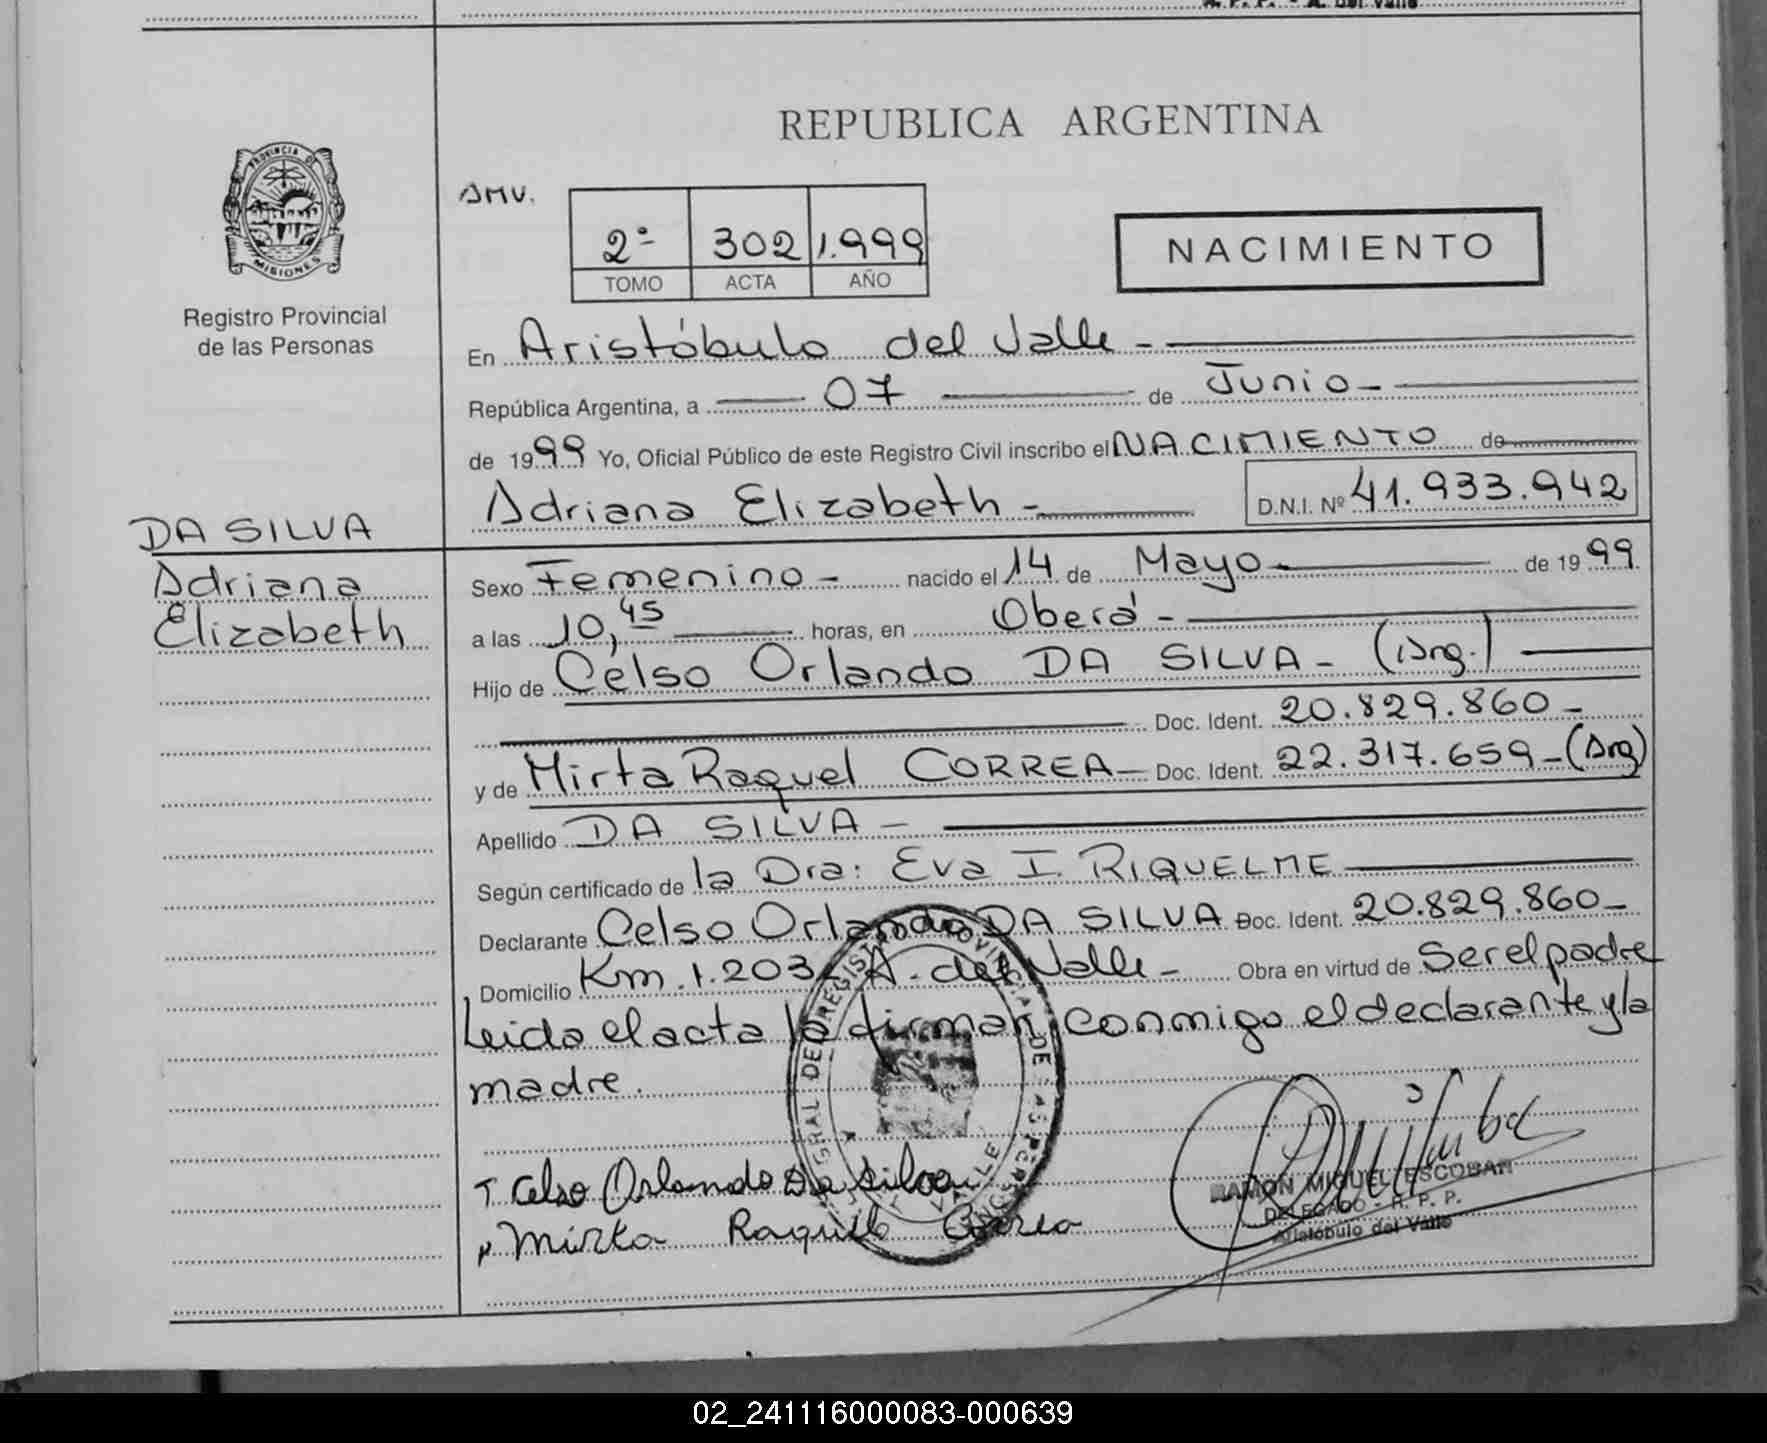 A. P. P. - A. del Valle
REPUBLICA ARGENTINA
PROVINCIA DE
MISIONES
Registro Provincial
de las Personas
AMV.
2º 302 1.999
TOMO ACTA AÑO
NACIMIENTO
En Aristóbulo del Valle -
República Argentina, a 07 de Junio -
de 1999 Yo, Oficial Público de este Registro Civil inscribo el NACIMIENTO de
Adriana Elizabeth - D.N.I. Nº 41.933.942
DA SILVA
Adriana
Elizabeth
Sexo Femenino - nacido el 14 de Mayo - de 1999
a las 10,45 horas, en Oberá -
Hijo de Celso Orlando DA SILVA - (Arg.)
Doc. Ident. 20.829.860 -
y de Mirta Raquel CORREA - Doc. Ident. 22.317.659 - (Arg)
Apellido DA SILVA -
Según certificado de la Dra: Eva I. RIQUELME
Declarante Celso Orlando DA SILVA Doc. Ident. 20.829.860 -
Domicilio Km. 1.203 A. del Valle - Obra en virtud de Ser el padre
Leida el acta la firman conmigo el declarante y la
madre.
Celso Orlando Da Silva
Mirta Raquel Correa
RAMON MIGUEL ESCOBAR
DELEGADO - R. P. P.
Aristóbulo del Valle
02_241116000083-000639